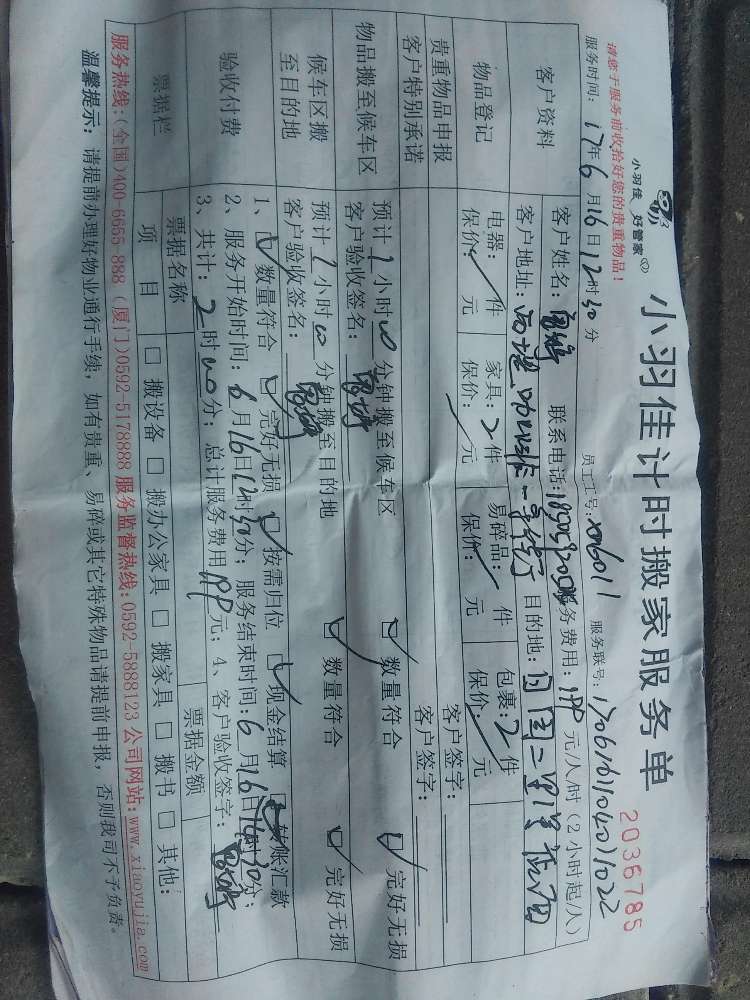 小羽佳 好管家
小羽佳计时搬家服务单
2036785
请您于服务前收拾好您的贵重物品!
服务时间: 17年6月16日12时30分 员工工号: xm6011 服务联号:
客户资料 客户姓名: 联系电话: 服务费用: 199元/人/时(2小时起/人)
客户地址: 目的地:
物品登记 电器: 件 家具: 2件 易碎品: 件 包裹: 2件
保价: 元 保价: 元 保价: 元 保价: 元
贵重物品申报 客户签字:
客户特别承诺 客户签字:
物品搬至候车区 预计1小时00分钟搬至候车区
客户验收签名: 数量符合 完好无损
候车区搬至目的地 预计1小时00分钟搬至目的地
客户验收签名: 数量符合 完好无损
验收付费 1、 数量符合 完好无损 按需归位 现金结算 转账汇款
2、服务开始时间: 6月16日12时30分; 服务结束时间: 6月16日 时30分;
3、共计: 2时00分; 总计服务费用199元; 4、客户验收签字:
票据栏 票据名称 票据金额
项目 □搬设备 □搬办公家具 □搬家具 □搬书 □其他:
服务热线:(全国)400-6655-888 (厦门)0592-5178888 服务监督热线:0592-5888123 公司网站:www.xiaoyujia.com
温馨提示: 请提前办理好物业通行手续, 如有贵重、易碎或其它特殊物品请提前申报, 否则我司不予负责。